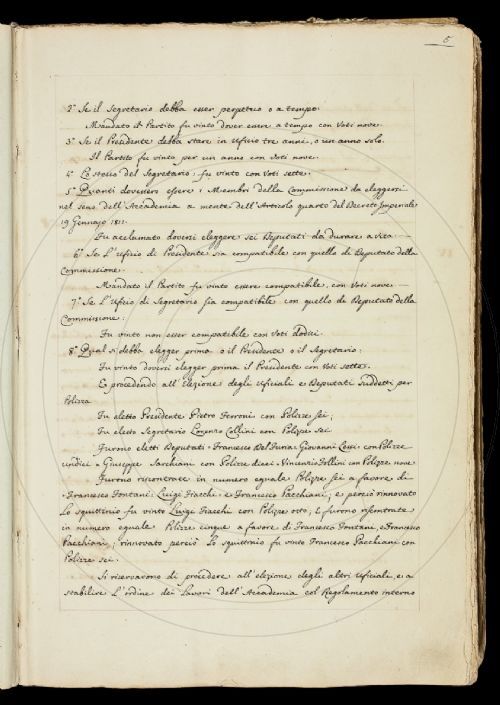 5
2.° Se il Segretario debba esser perpetuo o a tempo.
Mandato il Partito fu vinto dover essere a tempo con Voti nove.
3.° Se il Presidente debba stare in Ufizio tre anni, o un anno solo.
Il Partito fu vinto per un anno con Voti nove.
4.° Lo stesso del Segretario: fu vinto con Voti sette.
5.° Quanti dovessero essere i Membri della Commissione da eleggersi
nel seno dell'Accademia a mente dell'Articolo quarto del Decreto Imperiale
19 Gennajo 1811.
Fu acclamato doversi eleggere sei Deputati da durare a vita.
6.° Se L'Ufizio di Presidente sia compatibile con quello di Deputato della
Commissione.
Mandato il Partito fu vinto essere compatibile, con Voti nove.
7.° Se L'Ufizio di Segretario sia compatibile con quello di Deputato della
Commissione:
Fu vinto non esser compatibile con Voti dodici.
8.° Qual si debba elegger prima o il Presidente o il Segretario:
Fu vinto doversi elegger prima il Presidente con Voti sette.
E procedendo all'elezione degli Ufiziali e Deputati suddetti per
Polizza
Fu eletto Presidente Pietro Ferroni con Polizze sei;
Fu eletto Segretario Lorenzo Collini con Polizze sei
Furono eletti Deputati Francesco Del Furia: Giovanni Lessi con Polizze
undici: Giuseppe Sarchiani con Polizze dieci: Vincenzio Follini con Polizze nove
Furono riscontrate in numero eguale Polizze sei a favore di
Francesco Fontani: Luigi Fiacchi e Francesco Pacchiani; e perciò rinnovato
Lo squittinio fu vinto Luigi Fiacchi con Polizze otto; E furono riscontrate
in numero eguale Polizze cinque a favore di Francesco Fontani, e Francesco
Pacchiani; rinnovato perciò Lo squittinio fu vinto Francesco Pacchiani con
Polizze sei.
Si riservarono di procedere all'elezione degli altri Ufiziali, e a
stabilire L'ordine dei Lavori dell'Accademia col Regolamento interno